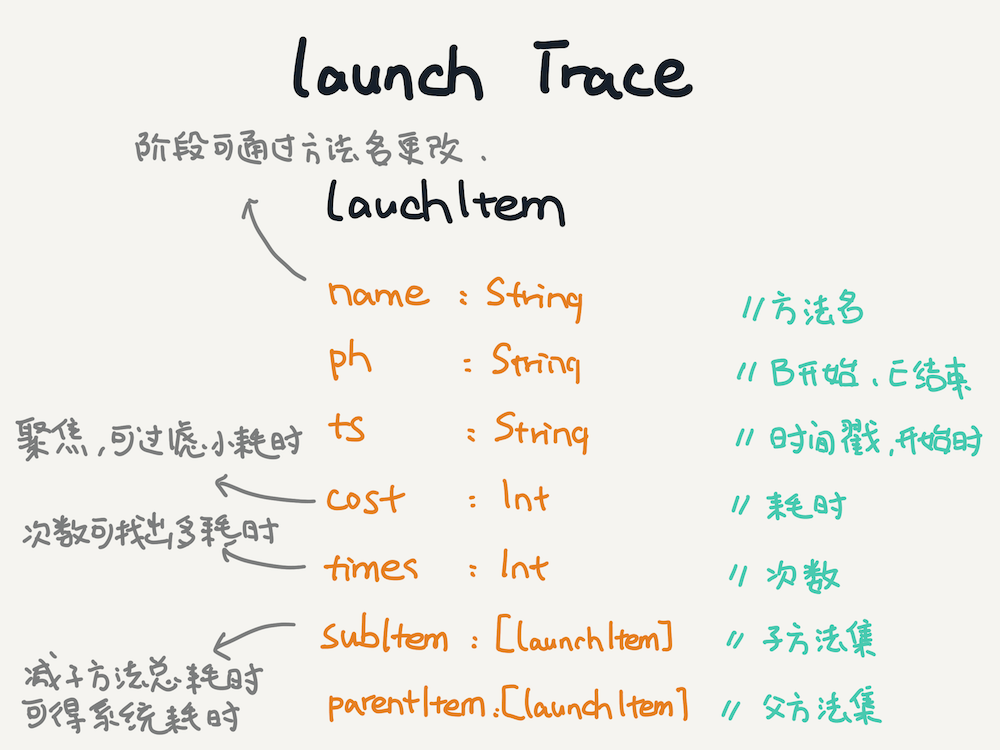 launch Trace
阶段可通过方法名更改.
lauchItem
name : String //方法名
ph : String // B开始、E结束
ts : String // 时间戳,开始时
聚焦,可过虑小耗时
cost : Int // 耗时
次数可找出多耗时
times : Int // 次数
subItem : [launchItem] // 子方法集
减子方法总耗时
可得系统耗时
parentItem : [launchItem] // 父方法集